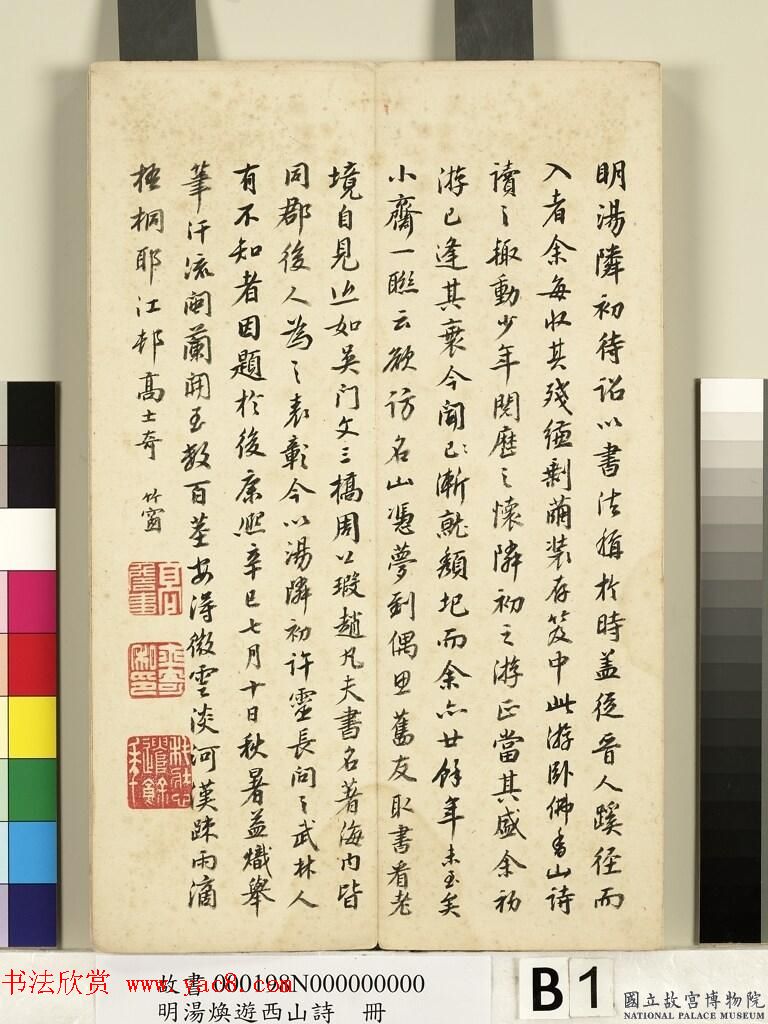 明湯隣初待詔以書法擅於時蓋從晉人蹊徑而
入者余每收其殘縑剩繭装存笈中此游卧佛香山詩
讀之趣動少年閱歷之懷隣初之游正當其盛余初
游已逢其衰今聞已漸就頹圮而余亦廿餘年未至矣
小齋一聯云欲訪名山憑夢到偶思舊友取書看老
境自見也如吳门文三橋周公瑕趙凡夫書名著海内皆
同郡後人為之表彰今以湯隣初许靈長问之武林人
有不知者因題於後康熙辛巳七月十日秋暑益熾舉
筆汗流阅蘭開至数百莖安得微雲淡河漢疎雨滴
梧桐耶江邨高士奇
竹窗
书法欣赏
www.yac8.com
故書 000198N000000000
明湯煥遊西山詩 冊
B1
國立故宮博物院
NATIONAL PALACE MUSEUM